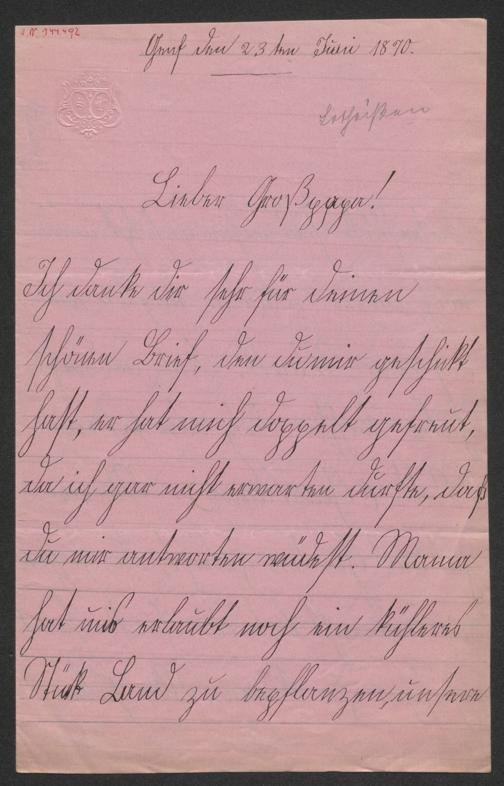 I.N. 144.492
Genf den 23ten Juni 1890.
Lieber Großpapa!
Ich danke dir sehr für deinen
schönen Brief, den du mir geschickt
hast, er hat mich doppelt gefreut,
da ich gar nicht erwarten durfte, daß
du mir antworten würdest. Mama
hat uns erlaubt noch ein kühleres
Stück Land zu bepflanzen, unsere